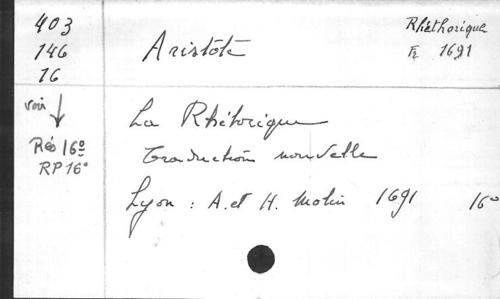 403
146
16
voir
Rés 16°
RP 16°
Aristote
Rhéthorique
Fr 1691
La Rhétorique
traduction nouvelle
Lyon : A. et H. Molin 1691 16°